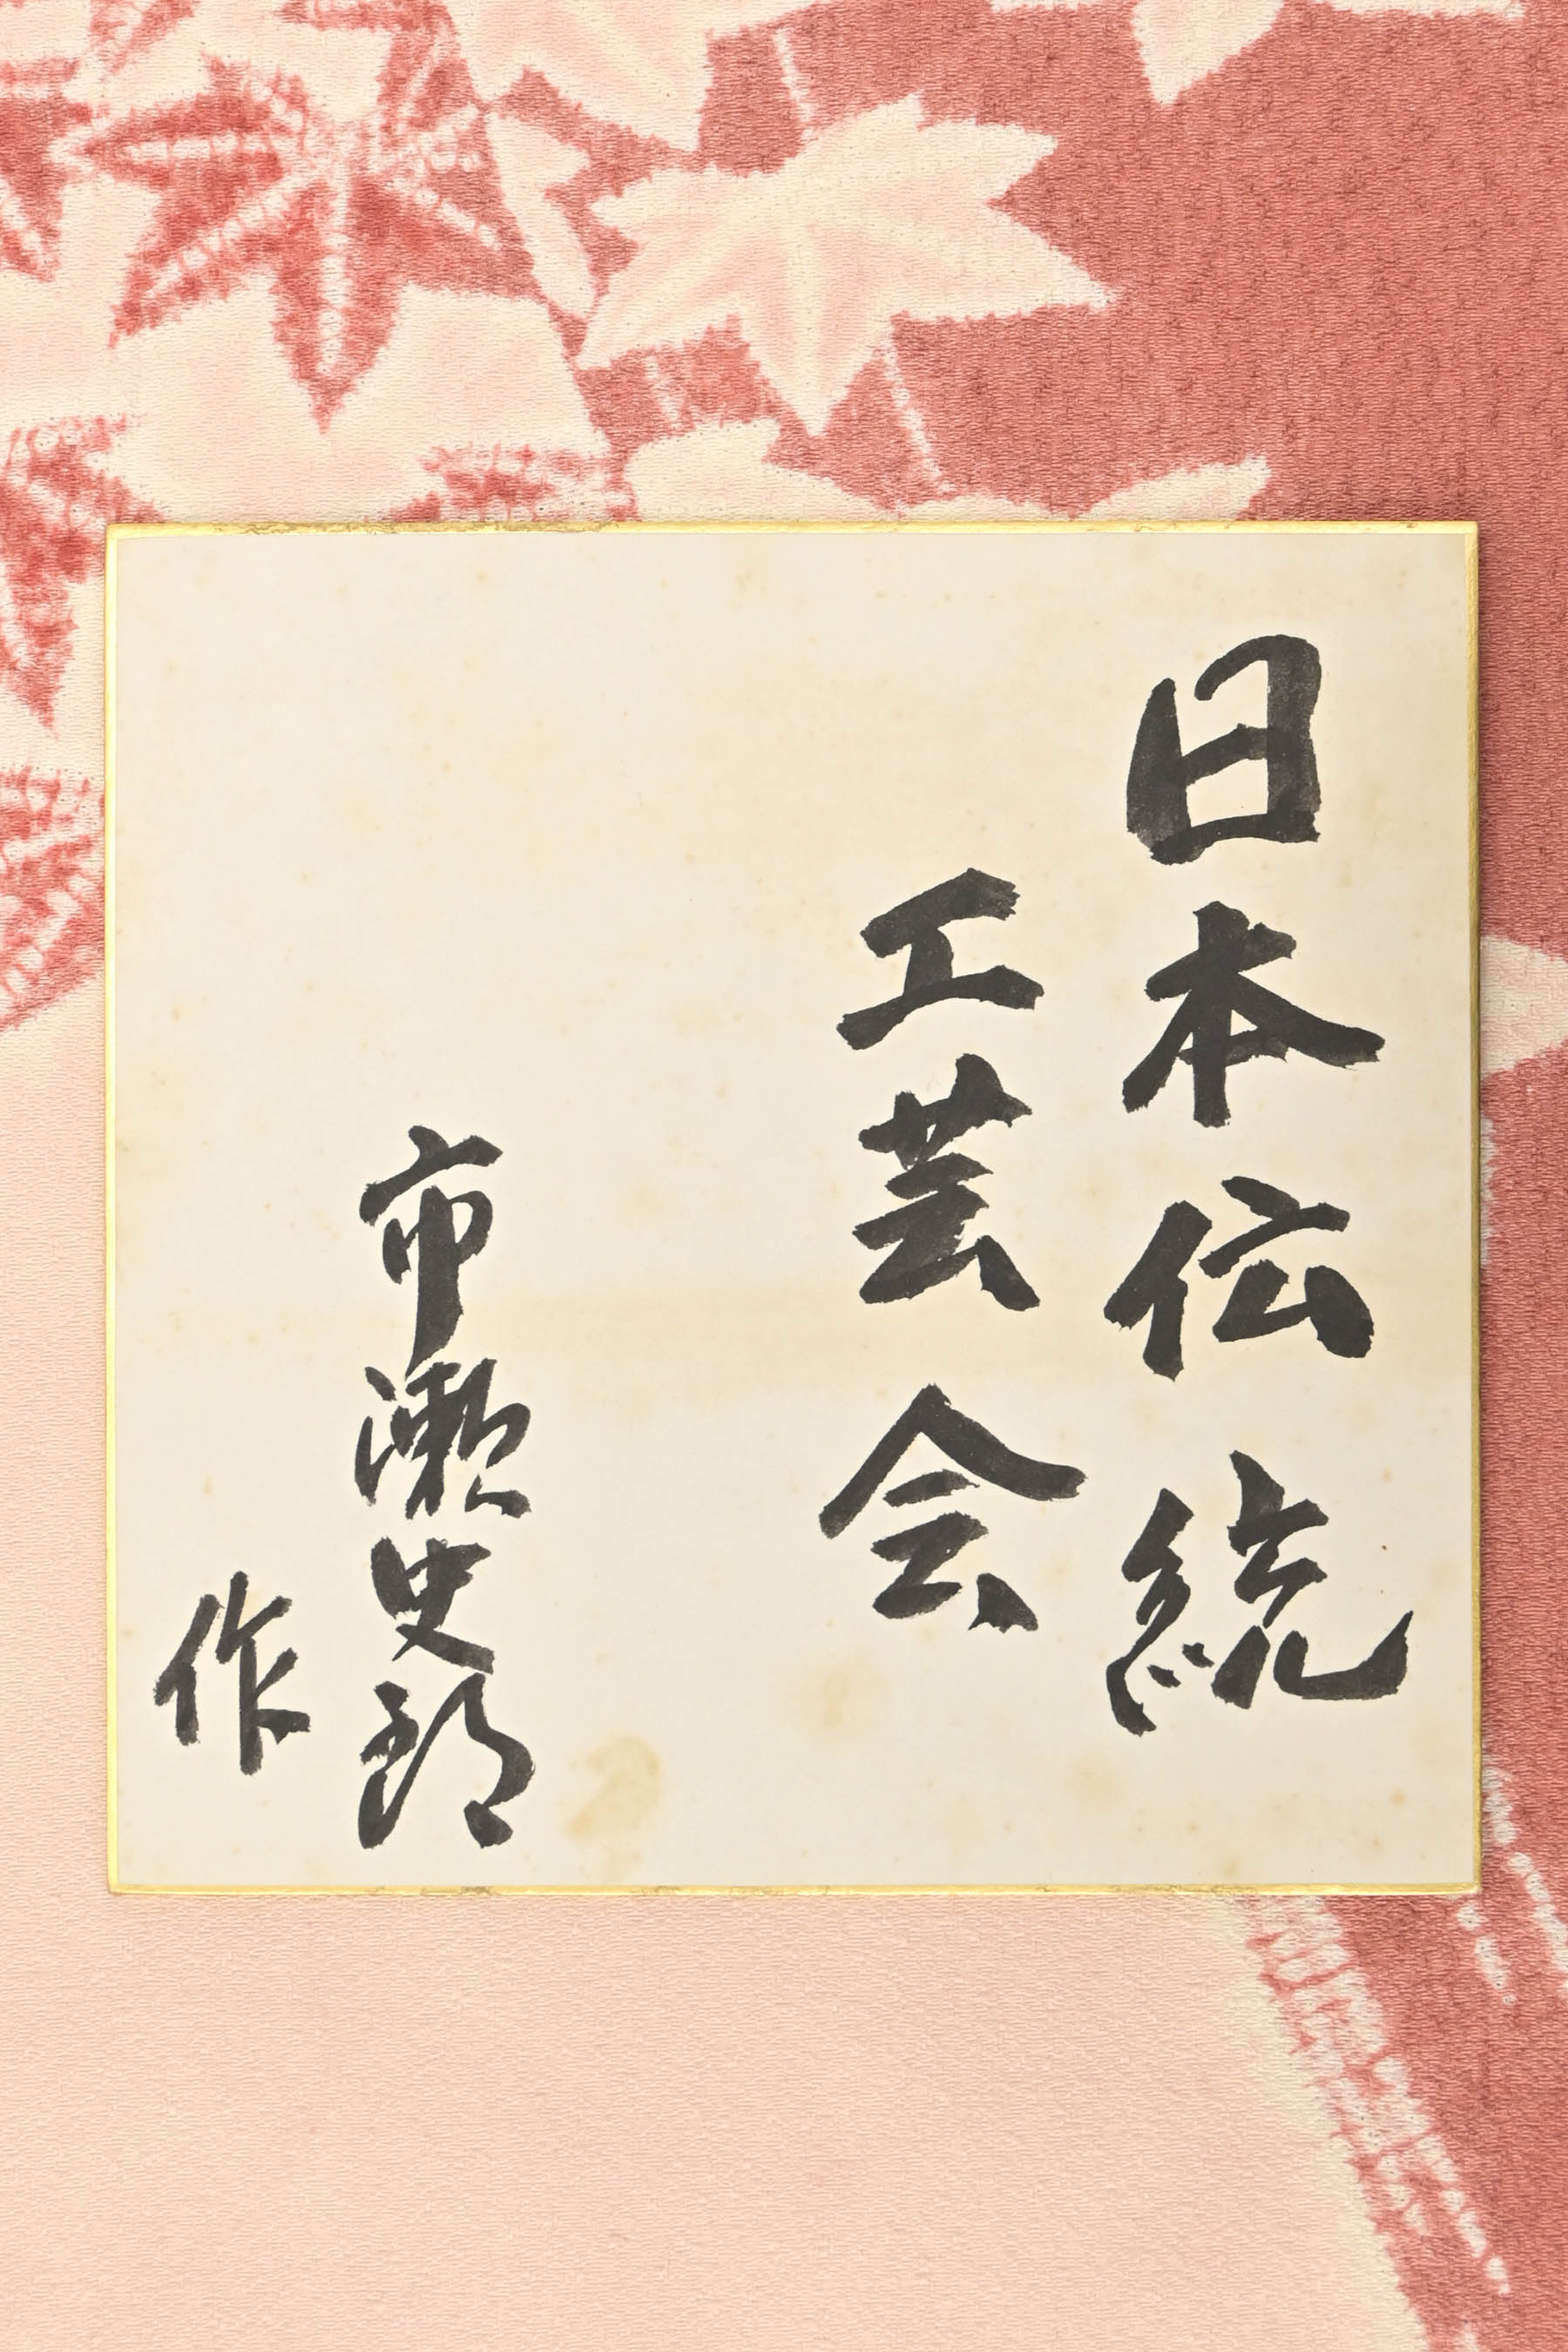 日本伝統
工芸会
市瀬史郎
作